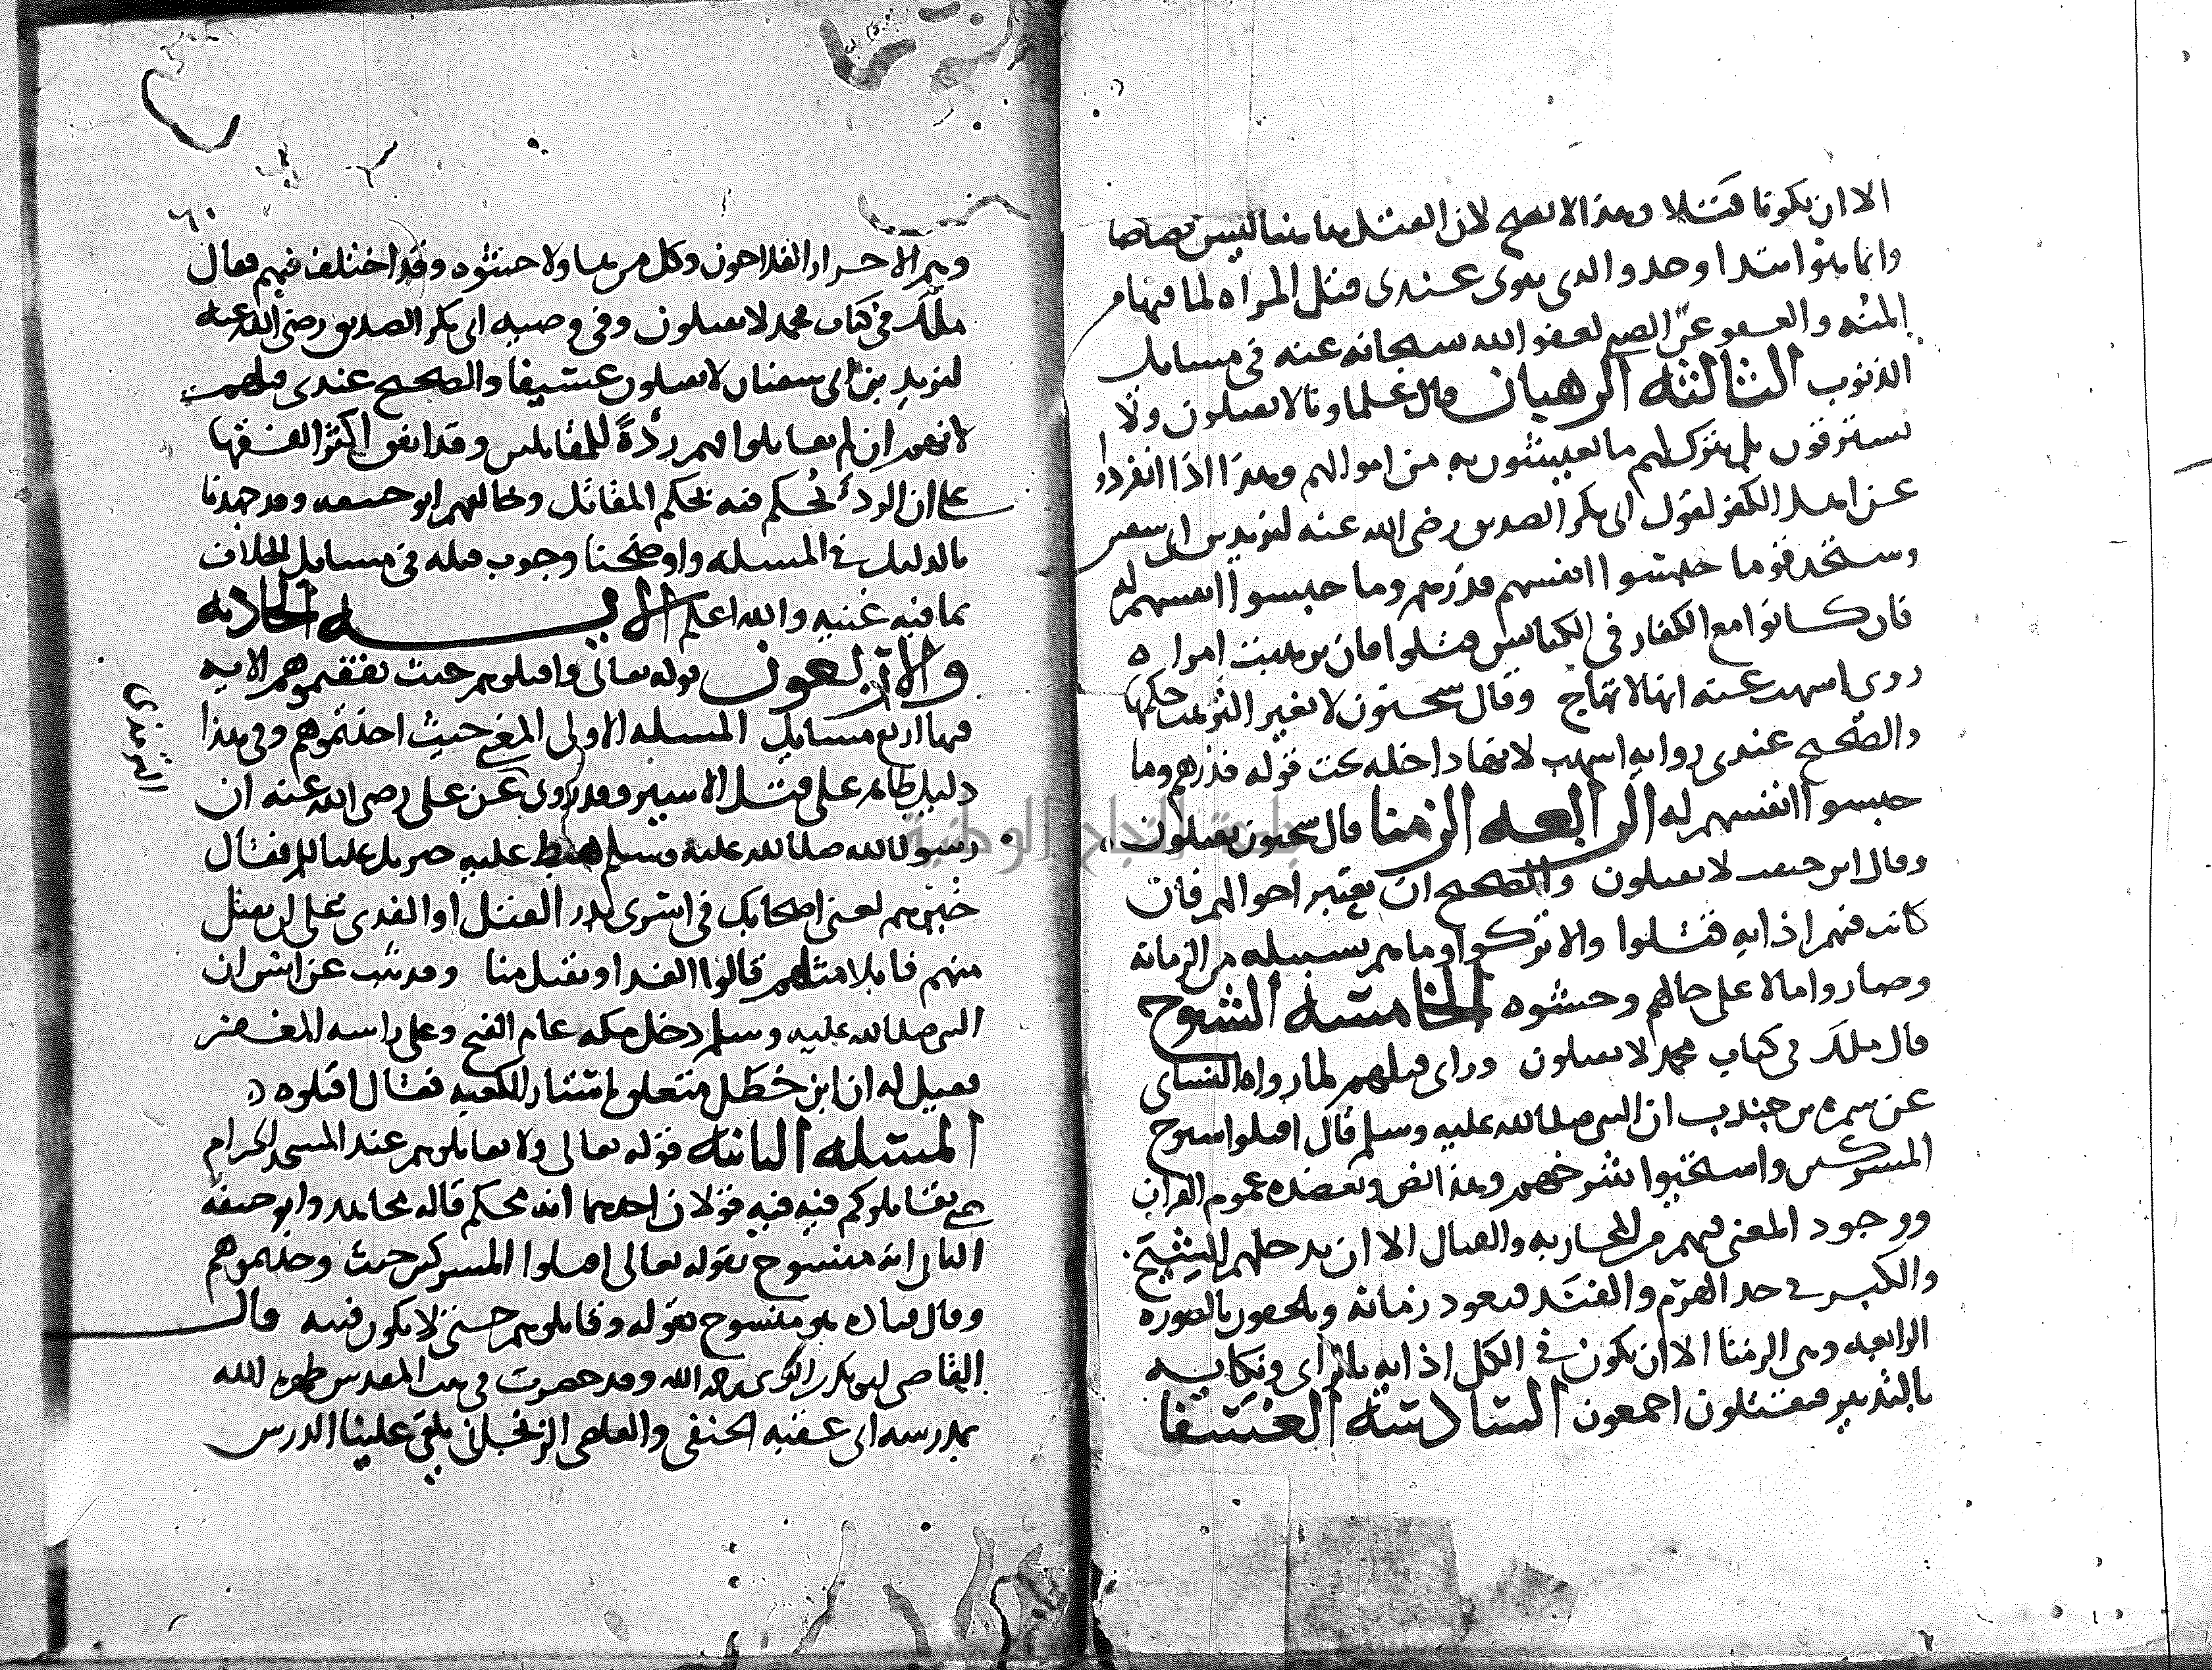 الا ان يكونا قتلا وهذا لا يصح لان القتل هاهنا ليس قصاصا
وانما هو ابتدا وحد والذي يقوى عندي قتل المراه لما فيها من
المنه والعفو عن الصبي لعفو الله سبحانه عنه في مسايل
الذنوب الثالثه الرهبان قال علماونا لا يقتلون ولا
يسترقون بل يترك لهم ما يعيشون به من اموالهم وهذا اذا انفردوا
عن اهل الكفر لقول ابي بكر الصديق رضي الله عنه ليزيد بن ابي سفين
وستجد قوما حبسوا انفسهم فذرهم وما حبسوا انفسهم له
فان كانوا مع الكفار في الكنايس قتلوا فان ترهبت امراه
روى اشهب عنه انها لا تهاج وقال سحنون لا يغير الترهب حكمها
والصحيح عندي روايه اشهب لانها داخله تحت قوله فذرهم وما
حبسوا انفسهم له الرابعه الزمنا قال سحنون يقتلون
وقال ابن حبيب لا يقتلون والصحيح ان يعتبر احوالهم فان
كانت فيهم اذايه قتلوا والا تركوا وما هم بسبيله من الزمانه
وصاروا مالا على حالهم وحشوه الخامسه الشيوخ
قال ملك في كتاب محمد لا يقتلون وراى قتلهم لما رواه النساي
عن سمره بن جندب ان النبي صلى الله عليه وسلم قال اقتلوا شيوخ
المشركين واستحيوا شرخهم وهذا نص ويعضده عموم القران
ووجود المعنى فيهم من المحاربه والقتال الا ان يدخلهم التشيخ
والكبر في حد الهرم والفند فيعود زمانه ويلحقون بالصوره
الرابعه وهي الزمنا الا ان يكون في الكل اذايه بالراي ونكايه
بالتدبير فيقتلون اجمعون السادسه العسفا
٦٠
وهم الاحرار الفلاحون وكل من هبا ولا حشوه وقد اختلف فيهم فقال
ملك في كتاب محمد لا يقتلون وفي وصيه ابي بكر الصديق رضي الله عنه
ليزيد بن ابي سفين لا يقتلون عسيفا والصحيح عندي قتلهم
لانهم ان لم يقاتلوا فهم ردءً للمقاتلين وقد اتفق اكثر الفقها
على ان الردء يحكم فيه بحكم المقاتل وخالفهم ابو حنيفه وقد مهدنا
بالدليل في المسله واوضحنا وجوب قتله في مسايل الخلاف
بما فيه غنيه والله اعلم الايه الحاديه
والاربعون قوله تعالى واقتلوهم حيث ثقفتموهم الايه
فيها اربع مسايل المسله الاولى المعنى حيث اخذتموهم وفي هذا
دليل ظاهر على قتل الاسير وقد روى عن علي رضي الله عنه ان
الترمذي
رسول الله صلى الله عليه وسلم هبط عليه جبريل عليه السلام فقال
خيرهم يعني اصحابك في اسرى بدر القتل او الفدى على ان يقتل
منهم قابلا مثلهم قالوا الفدا ويقتل منا وقد ثبت عن انس ان
النبي صلى الله عليه وسلم دخل مكه عام الفتح وعلى راسه المغفر
فقيل له ان ابن خطل متعلق باستار الكعبه فقال اقتلوه
المسله الثانيه قوله تعالى ولا تقاتلوهم عند المسجد الحرام
حتى يقاتلوكم فيه فيه قولان احدهما انه محكم قاله مجاهد وابو حنيفه
الثاني انه منسوخ بقوله تعالى اقتلوا المشركين حيث وجدتموهم
وقال قتاده هو منسوخ بقوله وقاتلوهم حتى لا تكون فتنه قال
القاضي ابو بكر رحمه الله وقد حضرت في بيت المقدس طهره الله
بمدرسه ابي عقبه الحنفي والقاضي الزنجاني يلقي علينا الدرس